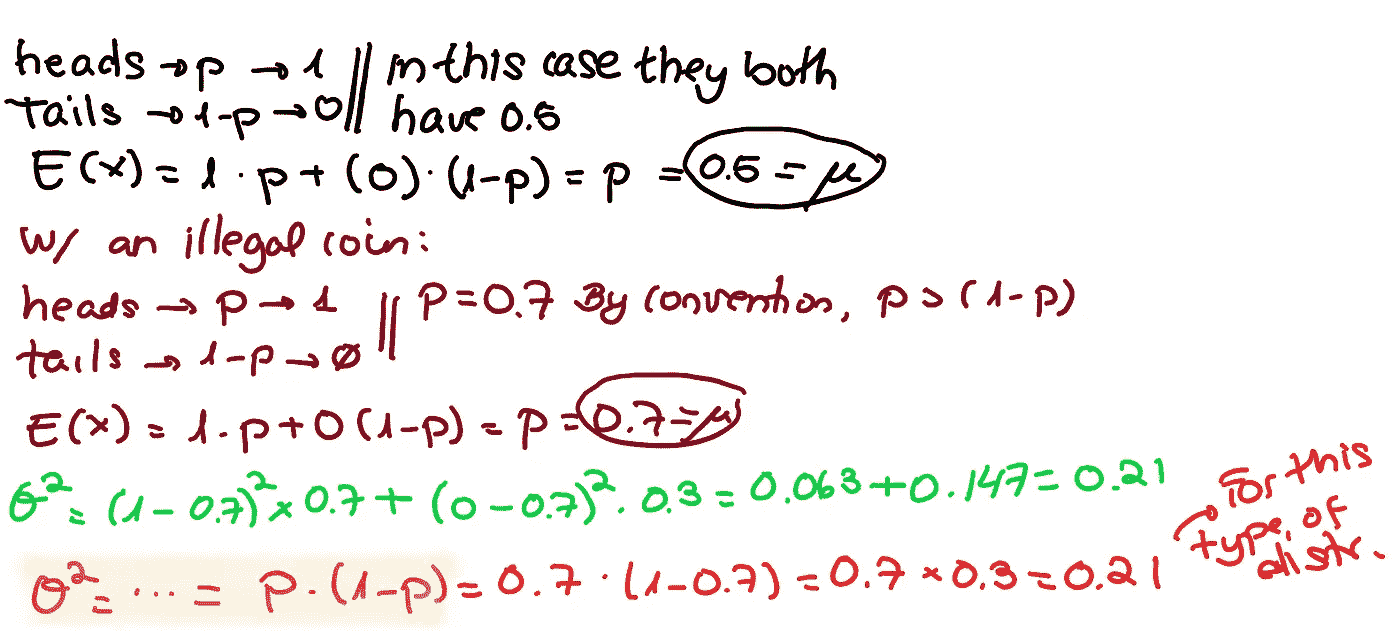 heads → p → 1 || In this case they both
Tails → 1-p → 0 || have 0.5
E(x) = 1 · p + (0) · (1-p) = p = 0.5 = μ
w/ an illegal coin:
heads → p → 1 || P = 0.7 By convention, p > (1-p)
tails → 1-p → ∅
E(x) = 1 · p + 0 (1-p) = p = 0.7 = μ
σ² = (1 - 0.7)² × 0.7 + (0 - 0.7)² · 0.3 = 0.063 + 0.147 = 0.21
σ² = ... = P · (1-p) = 0.7 · (1-0.7) = 0.7 × 0.3 = 0.21
→ For this
type of
distr.